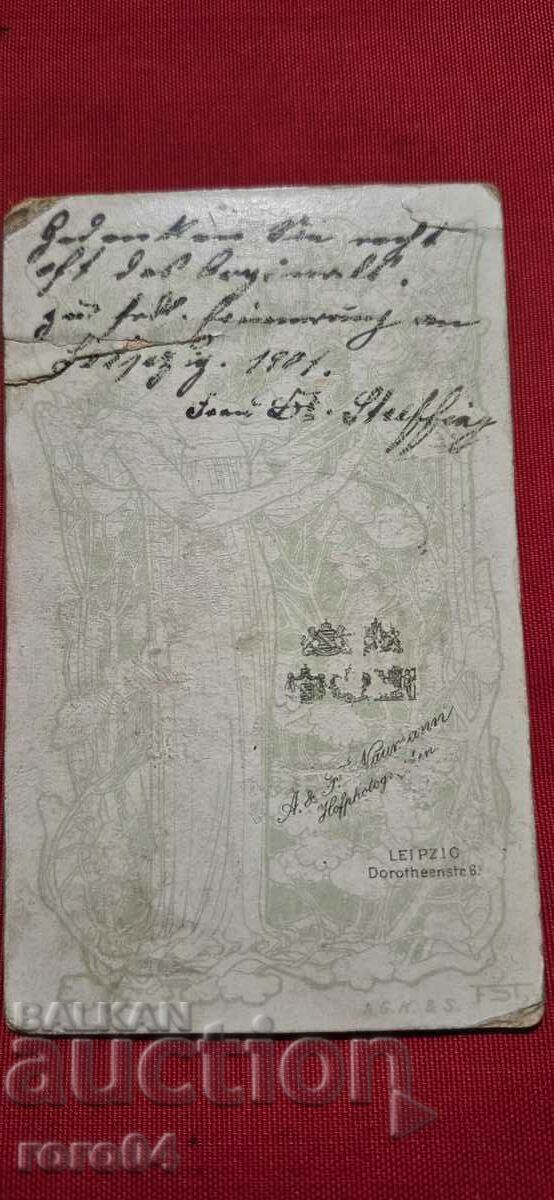 Gedenken Sie recht
oft des Originals.
Zur frdl. Erinnerung an
Leipzig. 1901.
Frau Dr. Steffing
A. & F. Naumann
Hofphotographen
LEIPZIG
Dorotheenstr 8.
& S.
BALKAN
auction
roro04